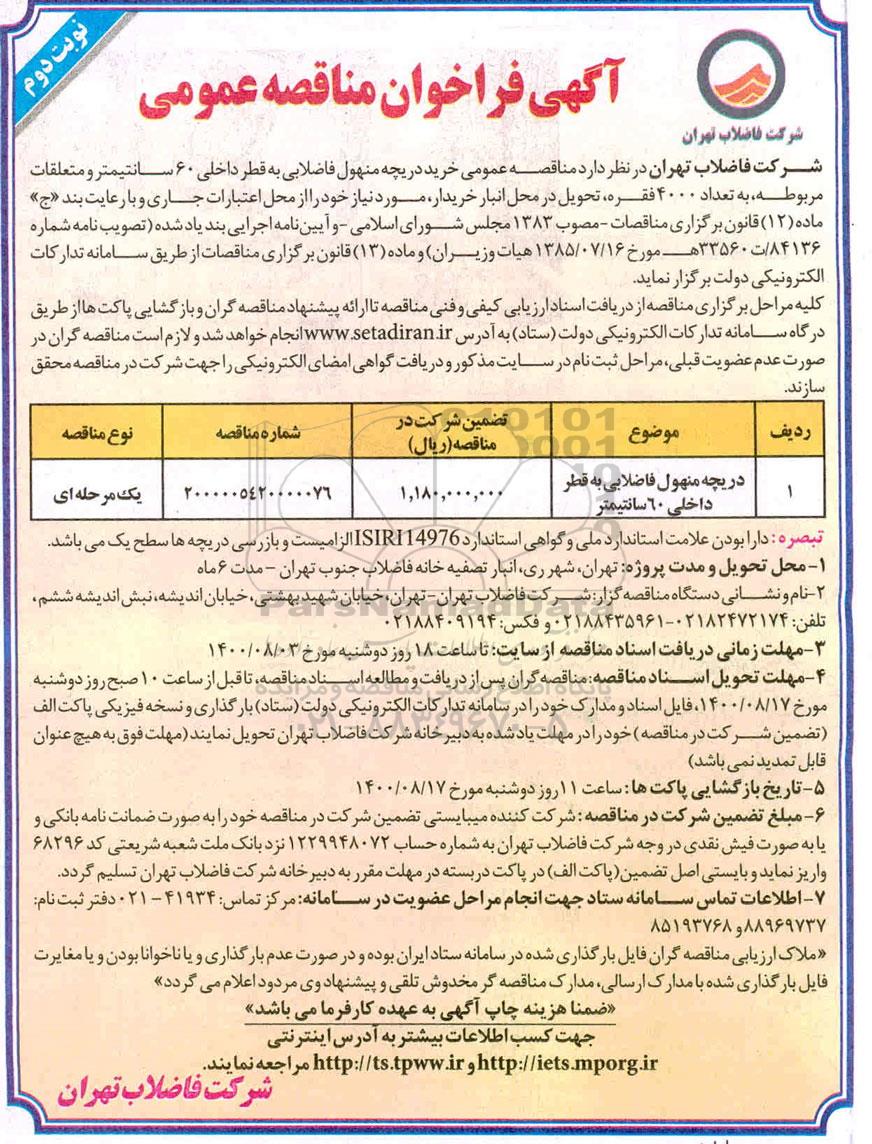 نوبت دوم
شرکت فاضلاب تهران
آگهی فراخوان مناقصه عمومی
شرکت فاضلاب تهران در نظر دارد مناقصه عمومی خرید دریچه منهول فاضلابی به قطر داخلی ۶۰ سانتیمتر و متعلقات
مربوطه، به تعداد ۴۰۰۰ فقره، تحویل در محل انبار خریدار، مورد نیاز خود را از محل اعتبارات جاری و با رعایت بند «ج»
ماده (۱۲) قانون برگزاری مناقصات -مصوب ۱۳۸۳ مجلس شورای اسلامی -و آیین نامه اجرایی بند یاد شده (تصویب نامه شماره
۸۴۱۳۶/ت ۳۳۵۶۰هـ مورخ ۱۳۸۵/۰۷/۱۶ هیات وزیران) و ماده (۱۳) قانون برگزاری مناقصات از طریق سامانه تدارکات
الکترونیکی دولت برگزار نماید.
کلیه مراحل برگزاری مناقصه از دریافت اسناد ارزیابی کیفی و فنی مناقصه تا ارائه پیشنهاد مناقصه گران و بازگشایی پاکت ها از طریق
درگاه سامانه تدارکات الکترونیکی دولت (ستاد) به آدرس www.setadiran.ir انجام خواهد شد و لازم است مناقصه گران در
صورت عدم عضویت قبلی، مراحل ثبت نام در سایت مذکور و دریافت گواهی امضای الکترونیکی را جهت شرکت در مناقصه محقق
سازند.
ردیف موضوع تضمین شرکت در مناقصه(ریال) شماره مناقصه نوع مناقصه
۱ دریچه منهول فاضلابی به قطر داخلی ۶۰سانتیمتر ۱,۱۸۰,۰۰۰,۰۰۰ ۲۰۰۰۰۰۵۴۲۰۰۰۰۰۷۶ یک مرحله ای
تبصره: دارا بودن علامت استاندارد ملی و گواهی استاندارد ISIRI14976 الزامیست و بازرسی دریچه ها سطح یک می باشد.
۱-محل تحویل و مدت پروژه: تهران، شهر ری، انبار تصفیه خانه فاضلاب جنوب تهران -مدت ۶ماه
۲-نام و نشانی دستگاه مناقصه گزار: شرکت فاضلاب تهران- تهران، خیابان شهید بهشتی، خیابان اندیشه، نبش اندیشه ششم،
تلفن: ۰۲۱۸۲۴۷۲۱۷۴-۰۲۱۸۸۴۳۵۹۶۱ و فکس: ۰۲۱۸۸۴۰۹۱۹۴
۳-مهلت زمانی دریافت اسناد مناقصه از سایت: تا ساعت ۱۸ روز دوشنبه مورخ ۱۴۰۰/۰۸/۰۳
۴-مهلت تحویل اسناد مناقصه: مناقصه گران پس از دریافت و مطالعه اسناد مناقصه، تا قبل از ساعت ۱۰ صبح روز دوشنبه
مورخ ۱۴۰۰/۰۸/۱۷، فایل اسناد و مدارک خود را در سامانه تدارکات الکترونیکی دولت (ستاد) بارگذاری و نسخه فیزیکی پاکت الف
(تضمین شرکت در مناقصه) خود را در مهلت یاد شده به دبیرخانه شرکت فاضلاب تهران تحویل نمایند (مهلت فوق به هیچ عنوان
قابل تمدید نمی باشد)
۵-تاریخ بازگشایی پاکت ها: ساعت ۱۱ روز دوشنبه مورخ ۱۴۰۰/۰۸/۱۷
۶-مبلغ تضمین شرکت در مناقصه: شرکت کننده میبایستی تضمین شرکت در مناقصه خود را به صورت ضمانت نامه بانکی و
یا به صورت فیش نقدی در وجه شرکت فاضلاب تهران به شماره حساب ۱۲۲۹۹۴۸۰۷۲ نزد بانک ملت شعبه شریعتی کد ۶۸۲۹۶
واریز نماید و بایستی اصل تضمین (پاکت الف) در پاکت دربسته در مهلت مقرر به دبیرخانه شرکت فاضلاب تهران تسلیم گردد.
۷-اطلاعات تماس سامانه ستاد جهت انجام مراحل عضویت در سامانه: مرکز تماس: ۴۱۹۳۴-۰۲۱ دفتر ثبت نام:
۸۸۹۶۹۷۳۷ و ۸۵۱۹۳۷۶۸
«ملاک ارزیابی مناقصه گران فایل بارگذاری شده در سامانه ستاد ایران بوده و در صورت عدم بارگذاری و یا ناخوانا بودن و یا مغایرت
فایل بارگذاری شده با مدارک ارسالی، مدارک مناقصه گر مخدوش تلقی و پیشنهاد وی مردود اعلام می گردد»
«ضمنا هزینه چاپ آگهی به عهده کارفرما می باشد»
جهت کسب اطلاعات بیشتر به آدرس اینترنتی
http://iets.mporg.ir و http://ts.tpww.ir مراجعه نمایند.
شرکت فاضلاب تهران